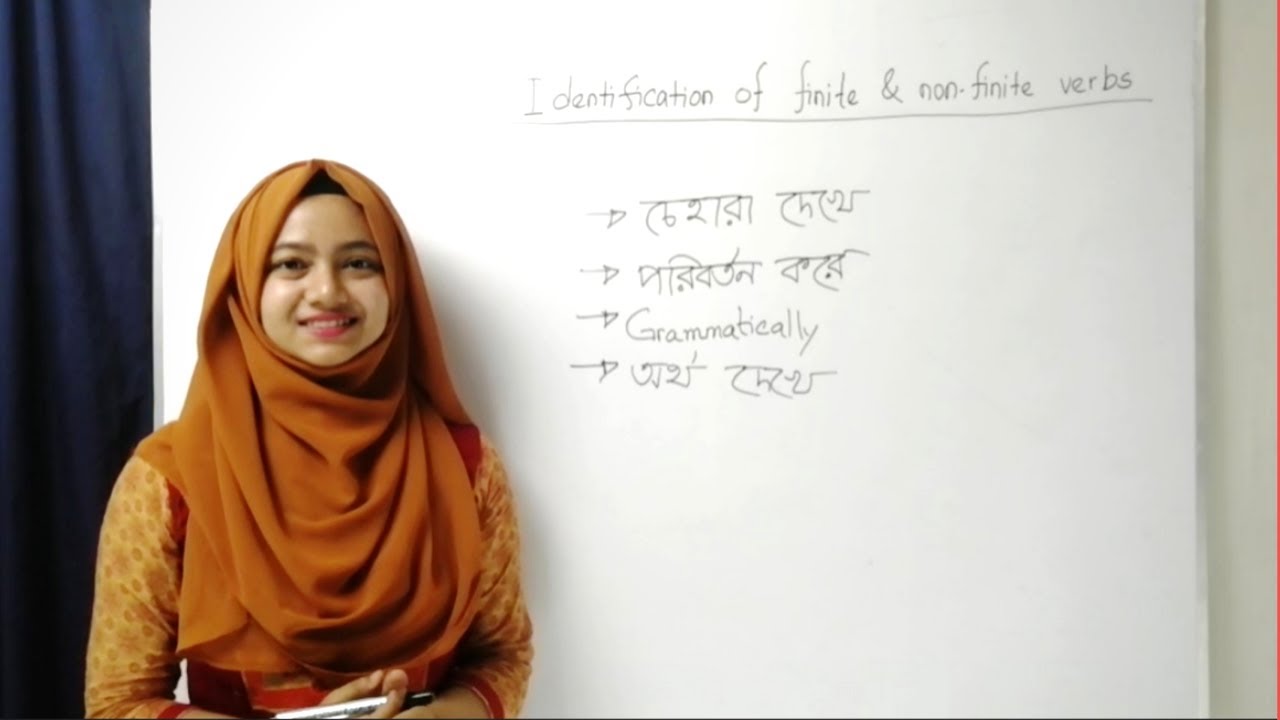 Identification of finite & non-finite verbs
→ চেহারা দেখে
→ পরিবর্তন করে
→ Grammatically
→ অর্থ দেখে